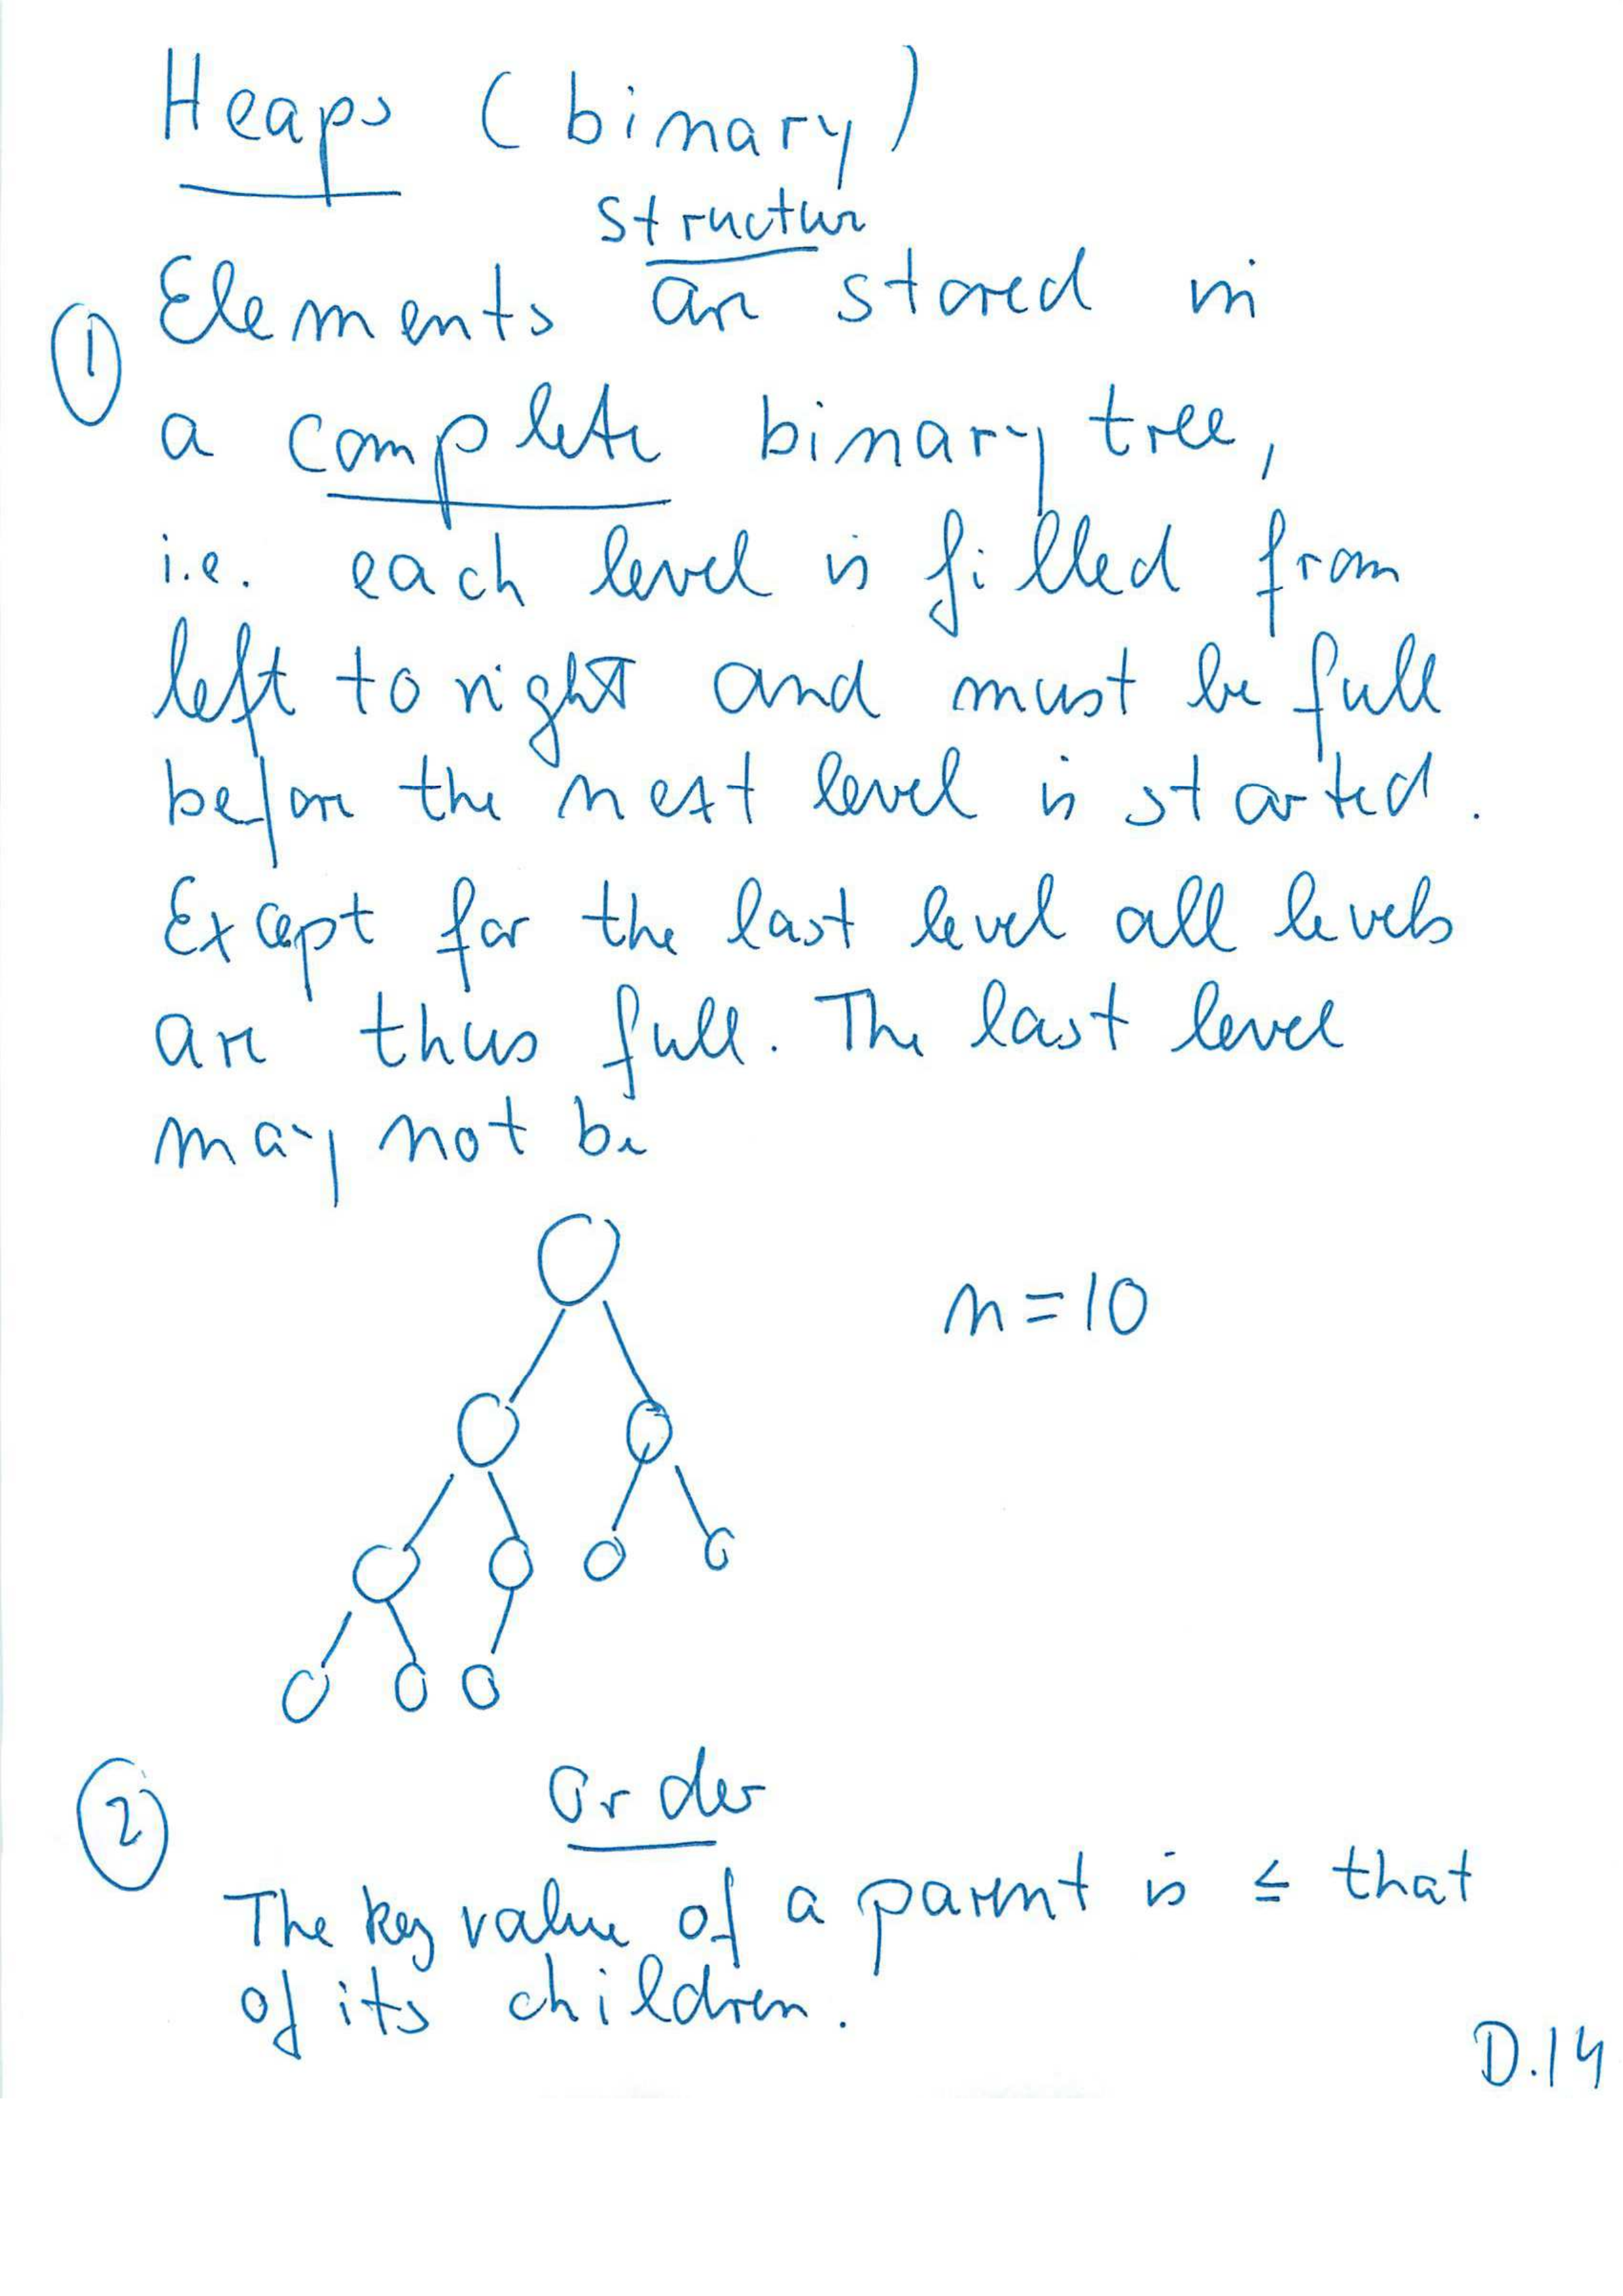 Heaps (binary)
structure
① Elements are stored in
a complete binary tree,
i.e. each level is filled from
left to right and must be full
before the next level is started.
Except for the last level all levels
are thus full. The last level
may not be
n=10
② order
The key value of a parent is ≤ that
of its children.
D.14